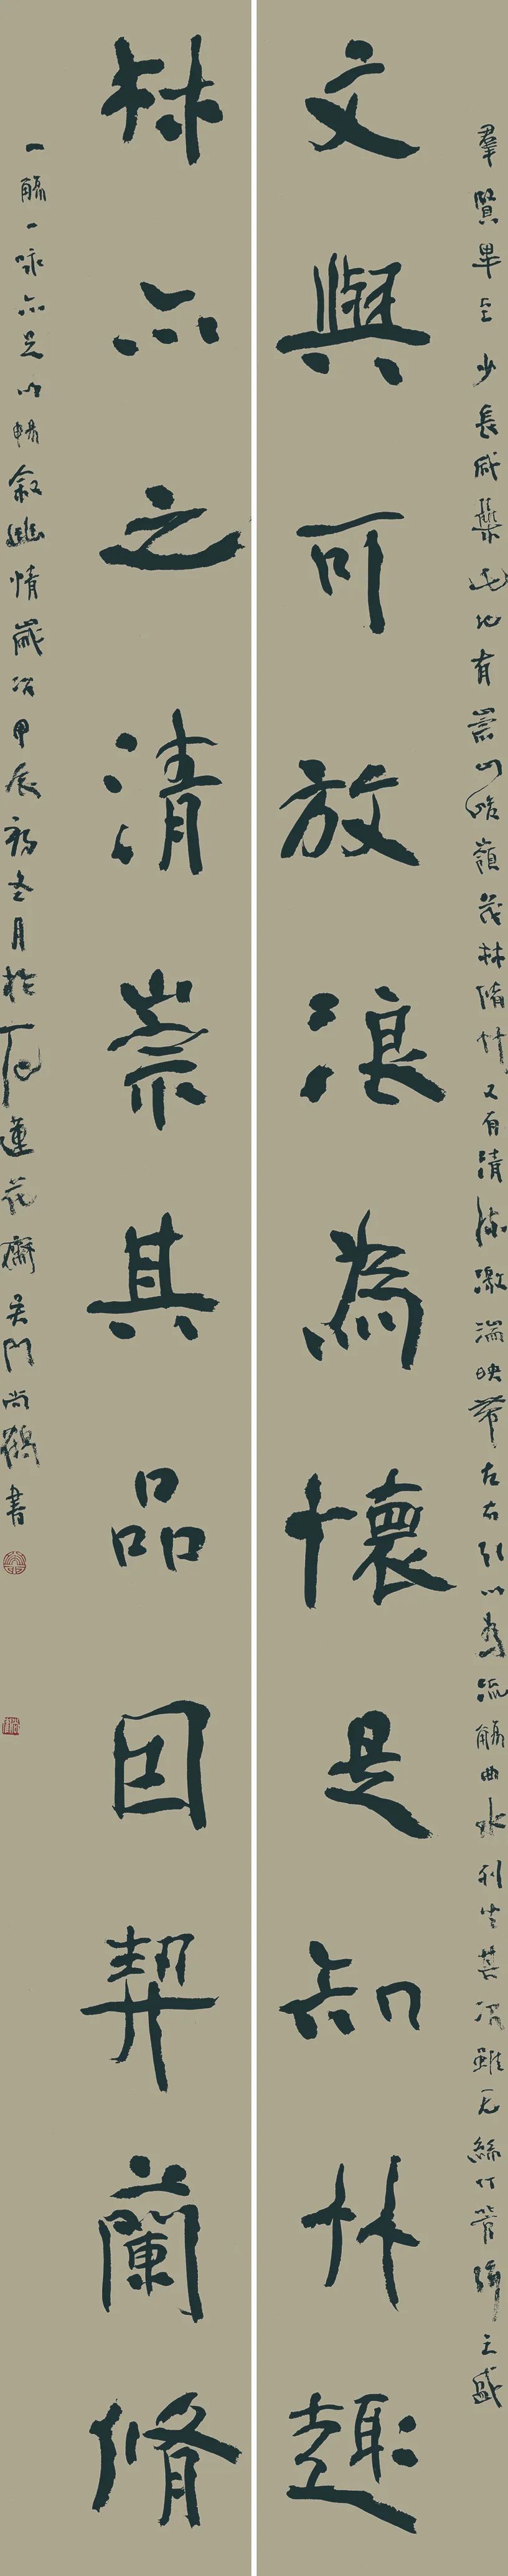 羣賢畢至少長咸集此地有崇山峻嶺茂林脩竹又有清流激湍映帶左右引以為流觴曲水列坐其次雖无絲竹管弦之盛
文與可放浪為懷是知竹趣
林亦之清崇其品因契蘭脩
一觴一咏亦足以暢叙幽情歲次甲辰初冬月於石蓮花齋吳門尚鶴書